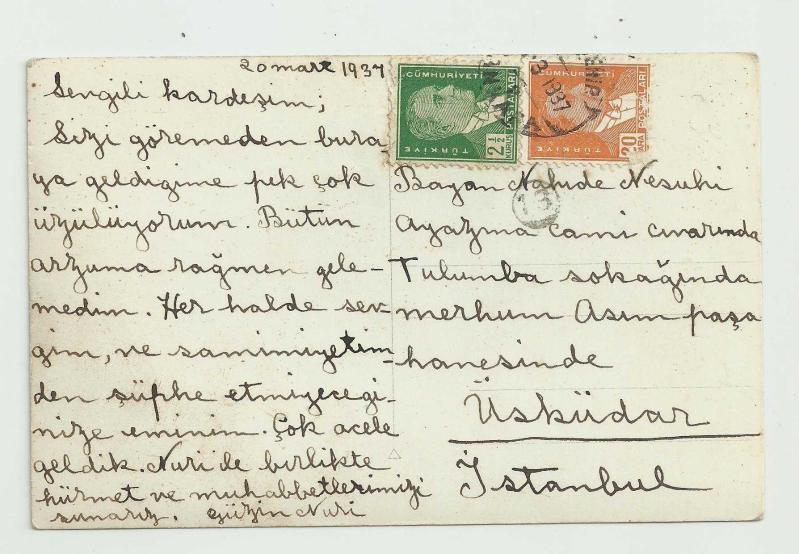 20 mart 1937
Sevgili kardeşim;
Sizi göremeden bura
ya geldiğime pek çok
üzülüyorum. Bütün
arzuma rağmen gele-
medim. Her halde sev-
gim, ve samimiyetim-
den şüphe etmiyeceği-
nize eminim. Çok acele
geldik. Nuri ile birlikte
hürmet ve muhabbetlerimizi
sunarız. Güzin Nuri
TÜRKİYE CÜMHURİYETİ
POSTALARI
2½ KURUŞ
TÜRKİYE CUMHURİYETİ
POSTALARI
20 PARA
3 1937
Bayan Nahide Nesuhi
Ayazma cami civarında
Tulumba sokağında
merhum Asım paşa
hanesinde
Üsküdar
İstanbul